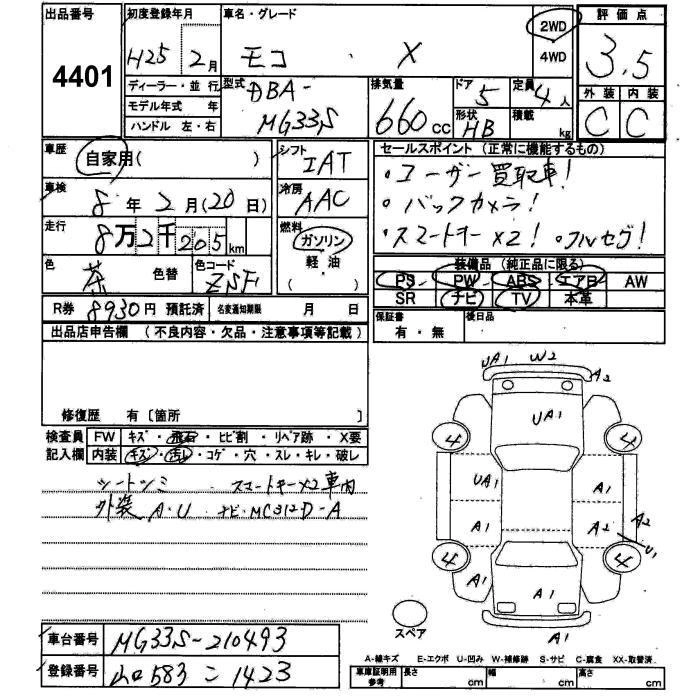 出品番号
4401
初度登録年月
H25 2月
車名・グレード
モコ ・ X
2WD
4WD
評価点
3.5
外装 内装
C C
ディーラー・並行
モデル年式 年
ハンドル 左・右
型式
DBA-
MG33S
排気量
660cc
ドア
5
形状
HB
定員
4人
積載
kg
車歴
自家用( )
車検
8年2月(20日)
走行
8万2千205km
色
茶
色替
色コード
ZSF
シフト
IAT
冷房
AAC
燃料
ガソリン
軽・油
( )
セールスポイント(正常に機能するもの)
・ユーザー買取車!
・バックカメラ!
・スマートキーX2! ・フルセグ!
装備品(純正品に限る)
PS PW ABS エアB AW
SR ナビ TV 本革
保証書
有・無
後日品
R券 8930円 預託済
名変通知期限 月 日
出品店申告欄(不良内容・欠品・注意事項等記載)
修復歴 有〔箇所 〕
検査員
記入欄
FW キズ・飛石・ヒビ割・リペア跡・X要
内装 キズ・汚レ・コゲ・穴・スレ・キレ・破レ
シートシミ スマートキーX2車内
外装 A・U ナビ・MC312D-A
車台番号 MG33S-210493
登録番号 山口583こ1423
UA1 W2 A2
UA1
4 4
UA1 A1
A1 A2 A2
U1
4 4
A1 A1 A1
A1
スペア
A-線キズ E-エクボ U-凹み W-補修跡 S-サビ C-腐食 XX-取替済
車庫証明用
参考
長さ cm
幅 cm
高さ cm